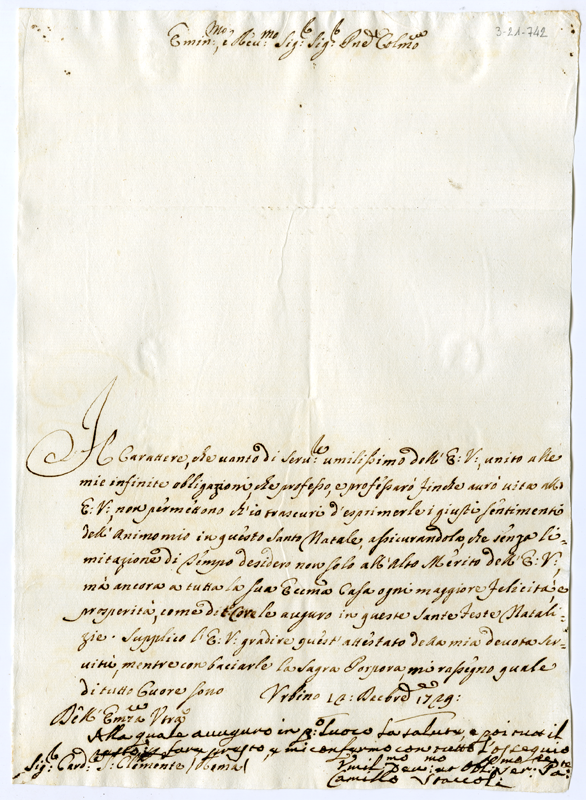 3-21-742
Emin:mo, e Rev:mo Sig:re Sig:re Pne Colmo
Il Carattere, che vanto di Serv:re umilissimo dell' E: V:, unito alle
mie infinite obligazioni, che professo, e professarò finche avrò vita all'
E: V: non permettono ch'io trascuri d'esprimerle i giusti sentimenti
dell' Animo mio in questo Santo Natale, assicurandola che senza li-
mitazione di tempo desidero non solo all' Alto Merito dell' E: V:
mà ancora a tutta la sua Eccma Casa ogni maggiore felicità, e
prosperità, come di Core le auguro in queste Sante Feste Natali-
zie. Supplico l'E: V: gradire quest' attestato della mia devota Ser-
vitù, mentre con baciarle la Sagra Porpora, mi rassegno quale
di tutto Cuore sono Urbino 14: Decbre 1749:
Dell' Emza Vrã
Alla quale auuguro in p:o luoco la salute, e poi tutt il
resto, e mi confermo con tutto l'ossequio
Sig:re Card: S: Clemente /Roma/
Umil:mo Dev:mo et Obl:mo Ser:re
Camillo Staccoli